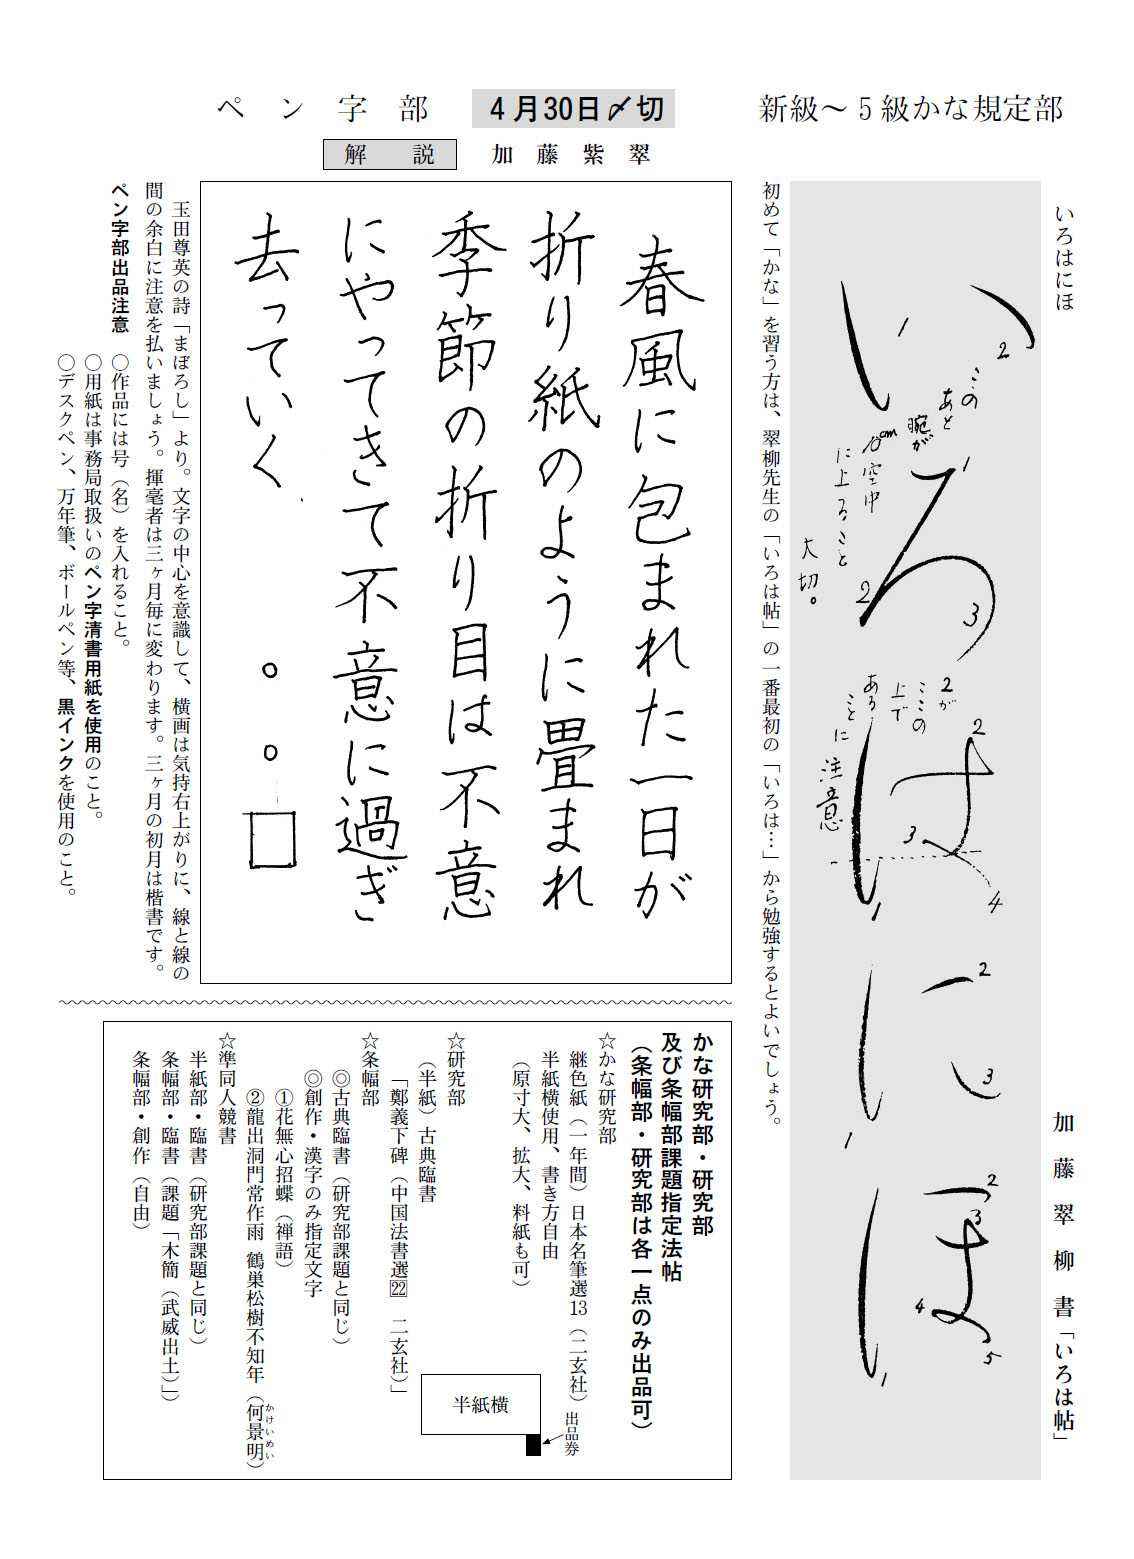 新級～5級かな規定部
4月30日〆切
ペン字部
解説　加藤紫翠
いろはにほ
加藤翠柳書「いろは帖」
い
1
2
この
あと
腕が
10cm空中
に上ること
大切。
ろ
1
2
3
2が
ここの
上で
ある
ことに
注意
は
1
2
3
4
に
1
2
3
ほ
1
2
3
4
5
初めて「かな」を習う方は、翠柳先生の「いろは帖」の一番最初の「いろは…」から勉強するとよいでしょう。
春風に包まれた一日が
折り紙のように畳まれ
季節の折り目は不意
にやってきて不意に過ぎ
去っていく　。。□
玉田尊英の詩「まぼろし」より。文字の中心を意識して、横画は気持右上がりに、線と線の
間の余白に注意を払いましょう。揮毫者は三ヶ月毎に変わります。三ヶ月の初月は楷書です。
ペン字部出品注意　○作品には号（名）を入れること。
○用紙は事務局取扱いのペン字清書用紙を使用のこと。
○デスクペン、万年筆、ボールペン等、黒インクを使用のこと。
かな研究部・研究部
及び条幅部課題指定法帖
（条幅部・研究部は各一点のみ出品可）
☆かな研究部
継色紙（一年間）日本名筆選13（二玄社）
半紙横使用、書き方自由
（原寸大、拡大、料紙も可）
半紙横
出品券
☆研究部
（半紙）古典臨書
「鄭羲下碑（中国法書選22　二玄社）」
☆条幅部
◎古典臨書（研究部課題と同じ）
◎創作・漢字のみ指定文字
①花無心招蝶（禅語）
②龍出洞門常作雨 鶴巣松樹不知年（何景明）
かけいめい
☆準同人競書
半紙部・臨書（研究部課題と同じ）
条幅部・臨書（課題「木簡（武威出土）」）
条幅部・創作（自由）